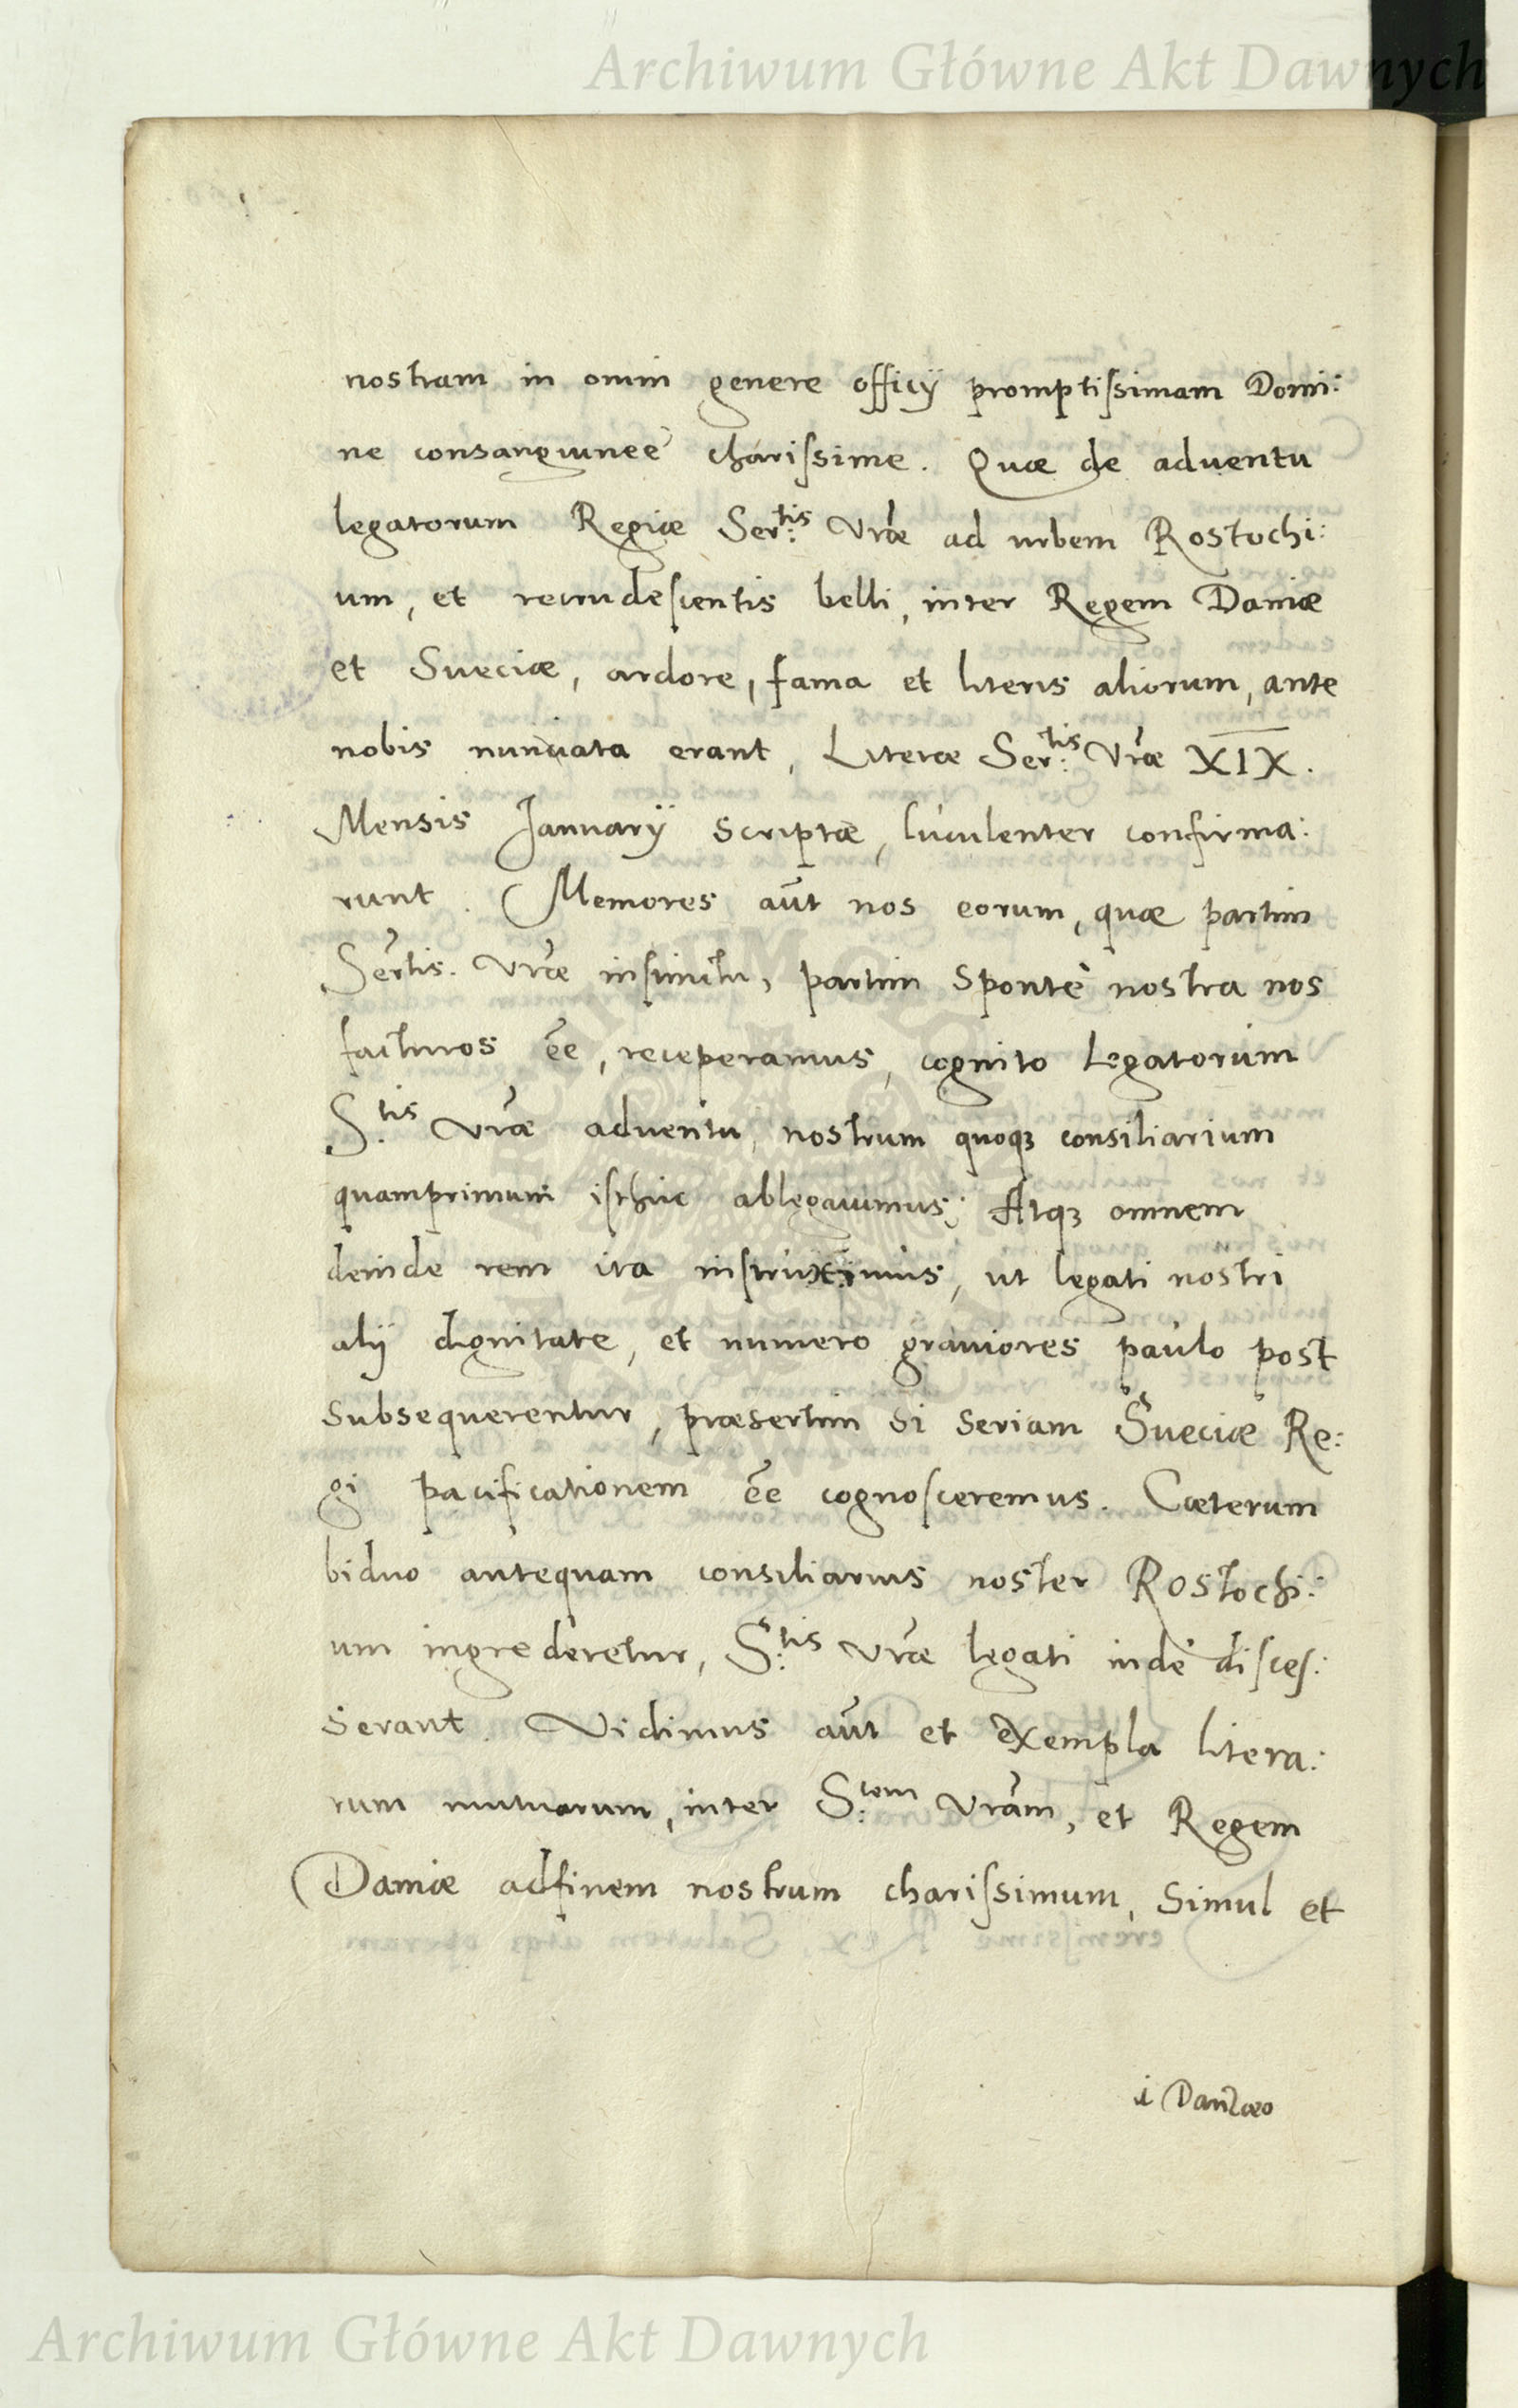 Archiwum Główne Akt Dawnych
nostram in omni genere officij promptissimam Domi:
ne consanguineè charissime. Quæ de aduentu
legatorum Regiæ Ser:tis Vræ ad urbem Rostochi:
um, et recrudescentis belli, inter Regem Daniæ
et Sueciæ, ardore, fama et literis aliorum, ante
nobis nunciata erant, Literæ Ser:tis Vræ XIX.
Mensis Januarij scriptæ, luculenter confirma:
runt. Memores aũt nos eorum, quæ partim
Sertis. Vræ instinctu, partim spontè nostra nos
facturos ẽe, receperamus, cognito Legatorum
S:tis Vræ aduentu, nostrum quoqz consiliarium
quamprimum isthuc ablegauimus; Atqz omnem
deinde rem ita instruximus, ut legati nostri
alij dignitate, et numero grauiores paulo post
subsequerentur, præsertim si seriam Sueciæ Re:
gi pacificationem ẽe cognosceremus. Cæterum
biduo antequam consiliarius noster Rostochi:
um ingrederetur, S:tis Vræ legati indè disces:
serant. Vidimus aũt et exempla litera:
rum mutuarum, inter S:tem Vram, et Regem
Daniæ adfinem nostrum charissimum, simul et
Archiwum Główne Akt Dawnych